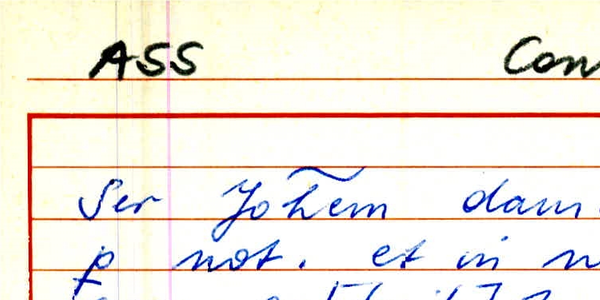 ASS Con
Ser Johem dam
p not. et in